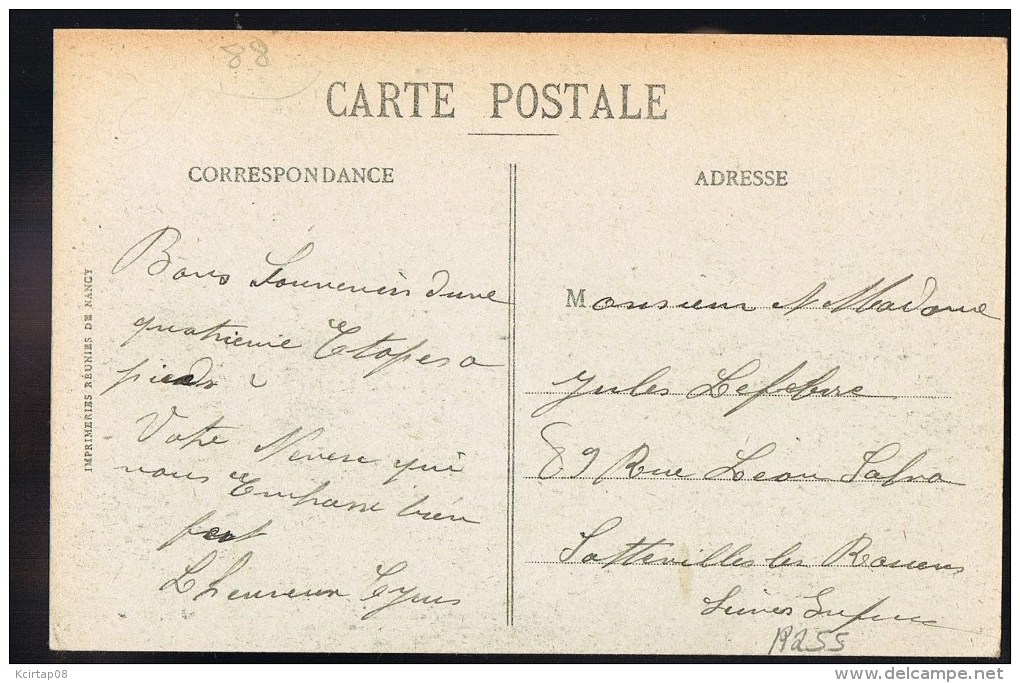 88
CARTE POSTALE
CORRESPONDANCE
ADRESSE
IMPRIMERIES RÉUNIES DE NANCY
Bons Souvenirs d'une
quatrieme Etapes a
pieds
Votre Neveu qui
vous Embrasse bien
fort
Lheureux
Monsieur Madame
Jules Lefebvre
89 Rue Léon Salva
Sottevilles les Rouens
Seines Infer
19255
Kcirtap08
www.delcampe.net